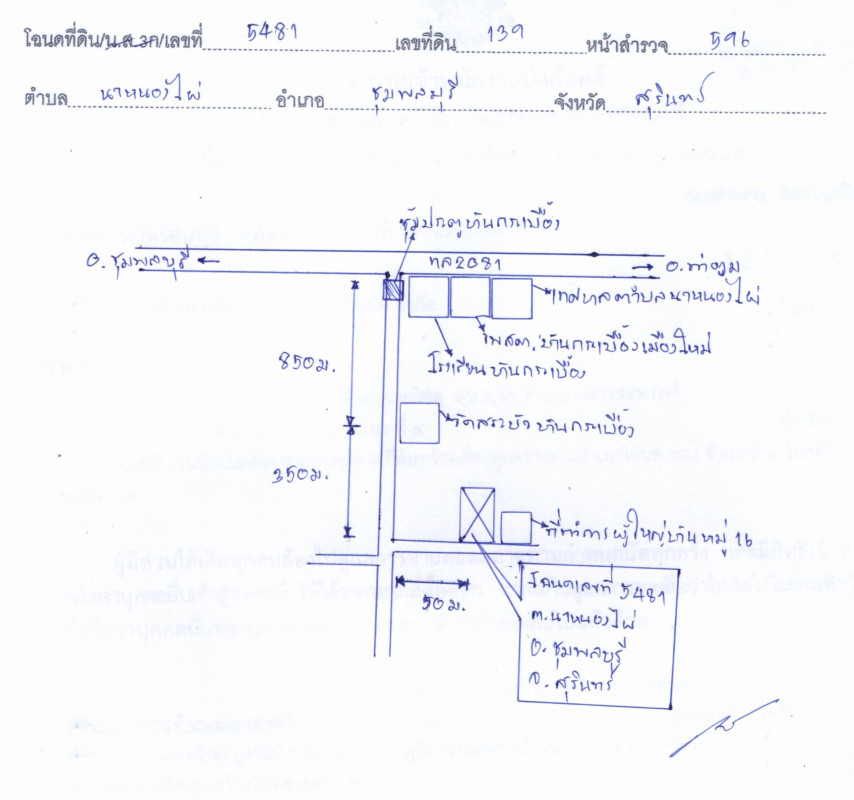 โฉนดที่ดิน/น.ส.3ก/เลขที่ 5481 เลขที่ดิน 139 หน้าสำรวจ 596
ตำบล นาหนองไผ่ อำเภอ ชุมพลบุรี จังหวัด สุรินทร์
ซุ้มประตูบ้านกระเบื้อง
อ.ชุมพลบุรี ทล2081 อ.ท่าตูม
เทศบาลตำบลนาหนองไผ่
รพ.สต.บ้านกระเบื้องเมืองใหม่
850ม. โรงเรียนบ้านกระเบื้อง
วัดสระบัวบ้านกระเบื้อง
350ม.
ที่ทำการผู้ใหญ่บ้านหมู่ 16
50ม.
โฉนดเลขที่ 5481
ต.นาหนองไผ่
อ.ชุมพลบุรี
จ.สุรินทร์